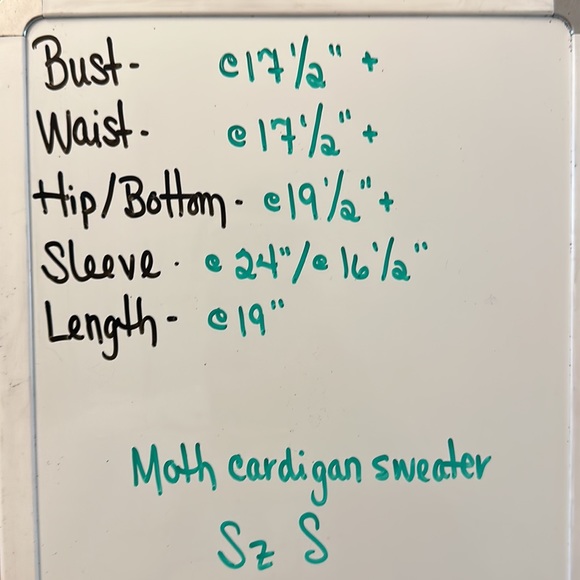 Bust- @17 1/2" +
Waist- @17 1/2" +
Hip/Bottom- @19 1/2" +
Sleeve- @24"/@16 1/2"
Length- @19"
Moth cardigan sweater
Sz S